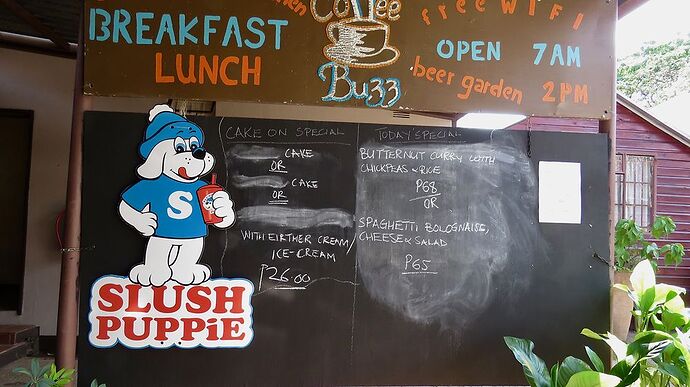 Coffee
Buzz
BREAKFAST
LUNCH
free WIFI
OPEN 7AM
beer garden 2PM
CAKE ON SPECIAL
CAKE
OR
CAKE
OR
WITH EIRTHER CREAM/
ICE-CREAM
P26.00
TODAY SPECIAL
BUTTERNUT CURRY WITH
CHICKPEAS & RICE
P68
OR
SPAGHETTI BOLOGNAISE,
CHEESE & SALAD
P65
S
SLUSH
PUPPiE